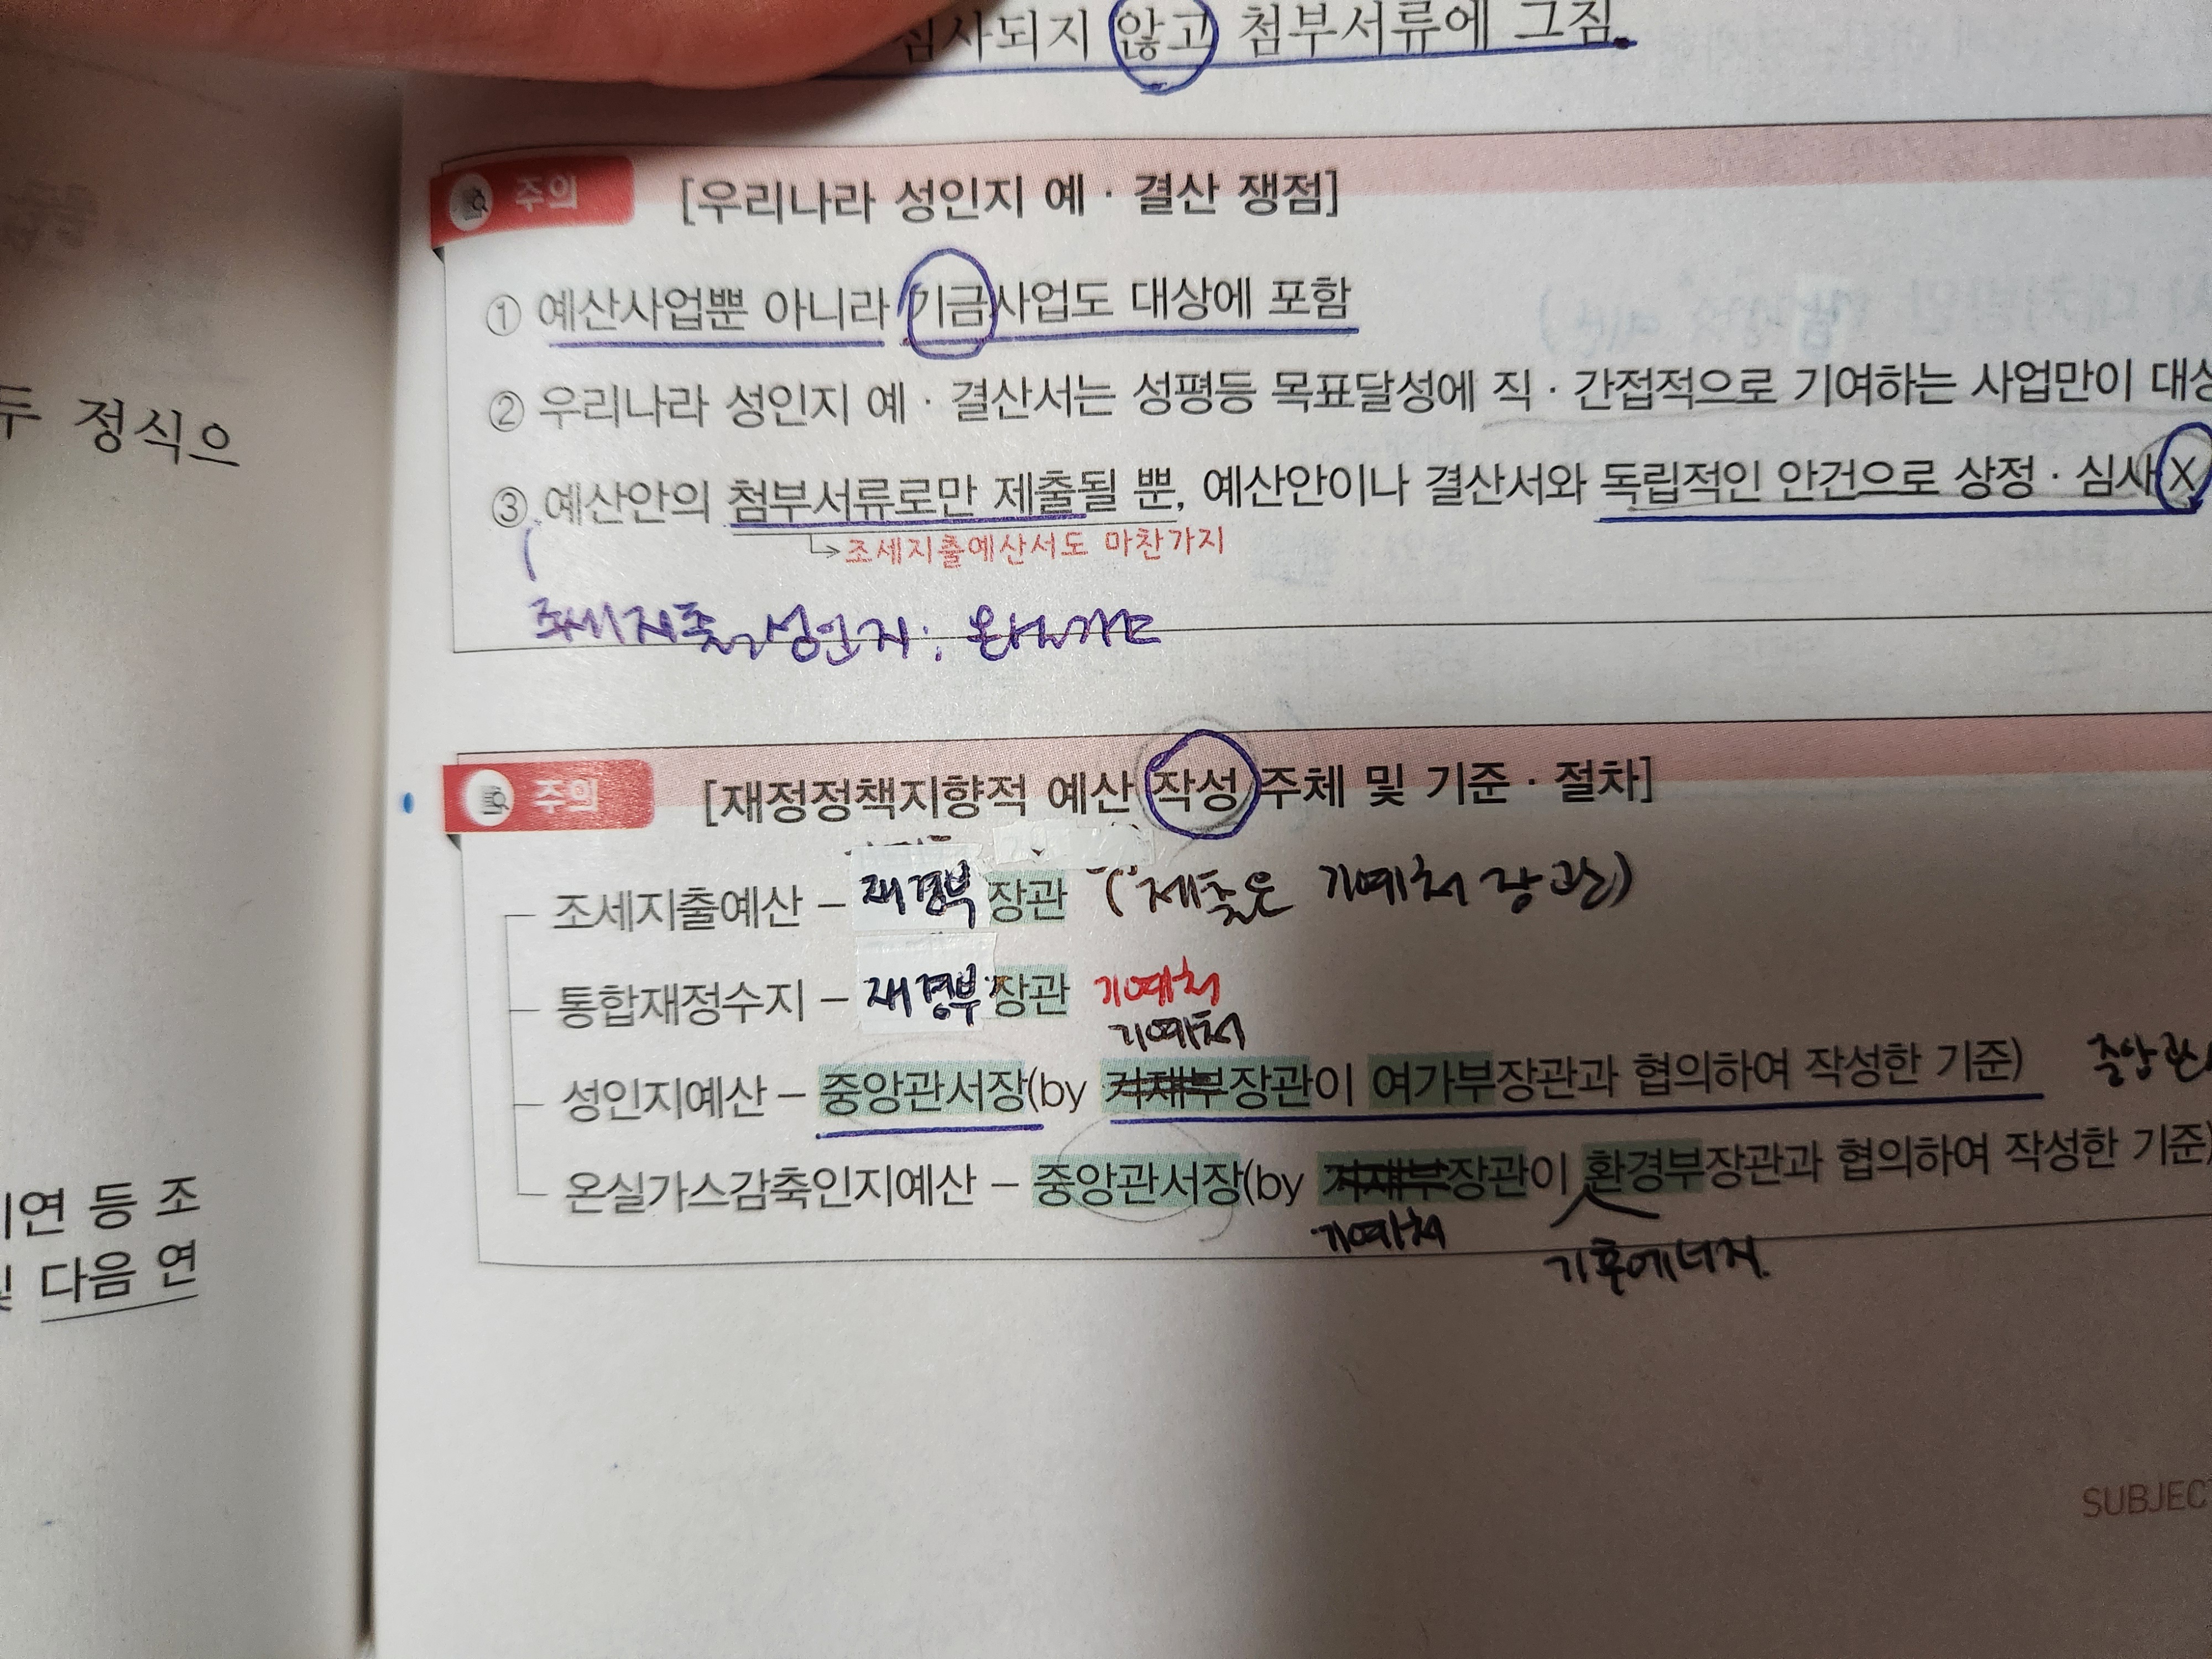 심사되지 않고 첨부서류에 그짐.
주의 [우리나라 성인지 예·결산 쟁점]
① 예산사업뿐 아니라 기금사업도 대상에 포함
② 우리나라 성인지 예·결산서는 성평등 목표달성에 직·간접적으로 기여하는 사업만이 대상
③ 예산안의 첨부서류로만 제출될 뿐, 예산안이나 결산서와 독립적인 안건으로 상정·심사 X
↳조세지출예산서도 마찬가지
조세지출, 성인지 :
주의 [재정정책지향적 예산 작성 주체 및 기준·절차]
조세지출예산 – 재경부 장관 (제출은 기예처 장관)
통합재정수지 – 재경부 장관 기예처
기예처
성인지예산 – 중앙관서장(by 기재부장관이 여가부장관과 협의하여 작성한 기준) 중앙관
온실가스감축인지예산 – 중앙관서장(by 기재부장관이 환경부장관과 협의하여 작성한 기준)
기예처 기후에너지
SUBJECT
정식으
연 등 조
다음 연